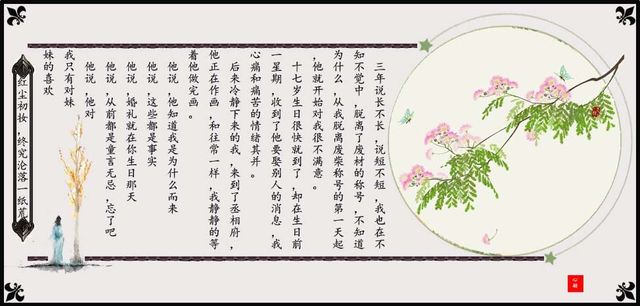 三年说长不长，说短不短，我也在不
知不觉中，脱离了废材的称号，不知道
为什么，从我脱离废柴称号的第一天起
，他就开始对我很不满意。
十七岁生日很快就到了，却在生日前
一星期，收到了他要娶别人的消息，我
心痛和痛苦的情绪其并。
后来冷静下来的我，来到了丞相府，
他正在作画，和往常一样，我静静的等
着他做完画。
他说，他知道我是为什么而来
他说，这些都是事实
他说，婚礼就在你生日那天
他说，从前都是童言无忌，忘了吧
他说，他对
我只有对妹
妹的喜欢
红尘初妆，终究沦落一纸荒